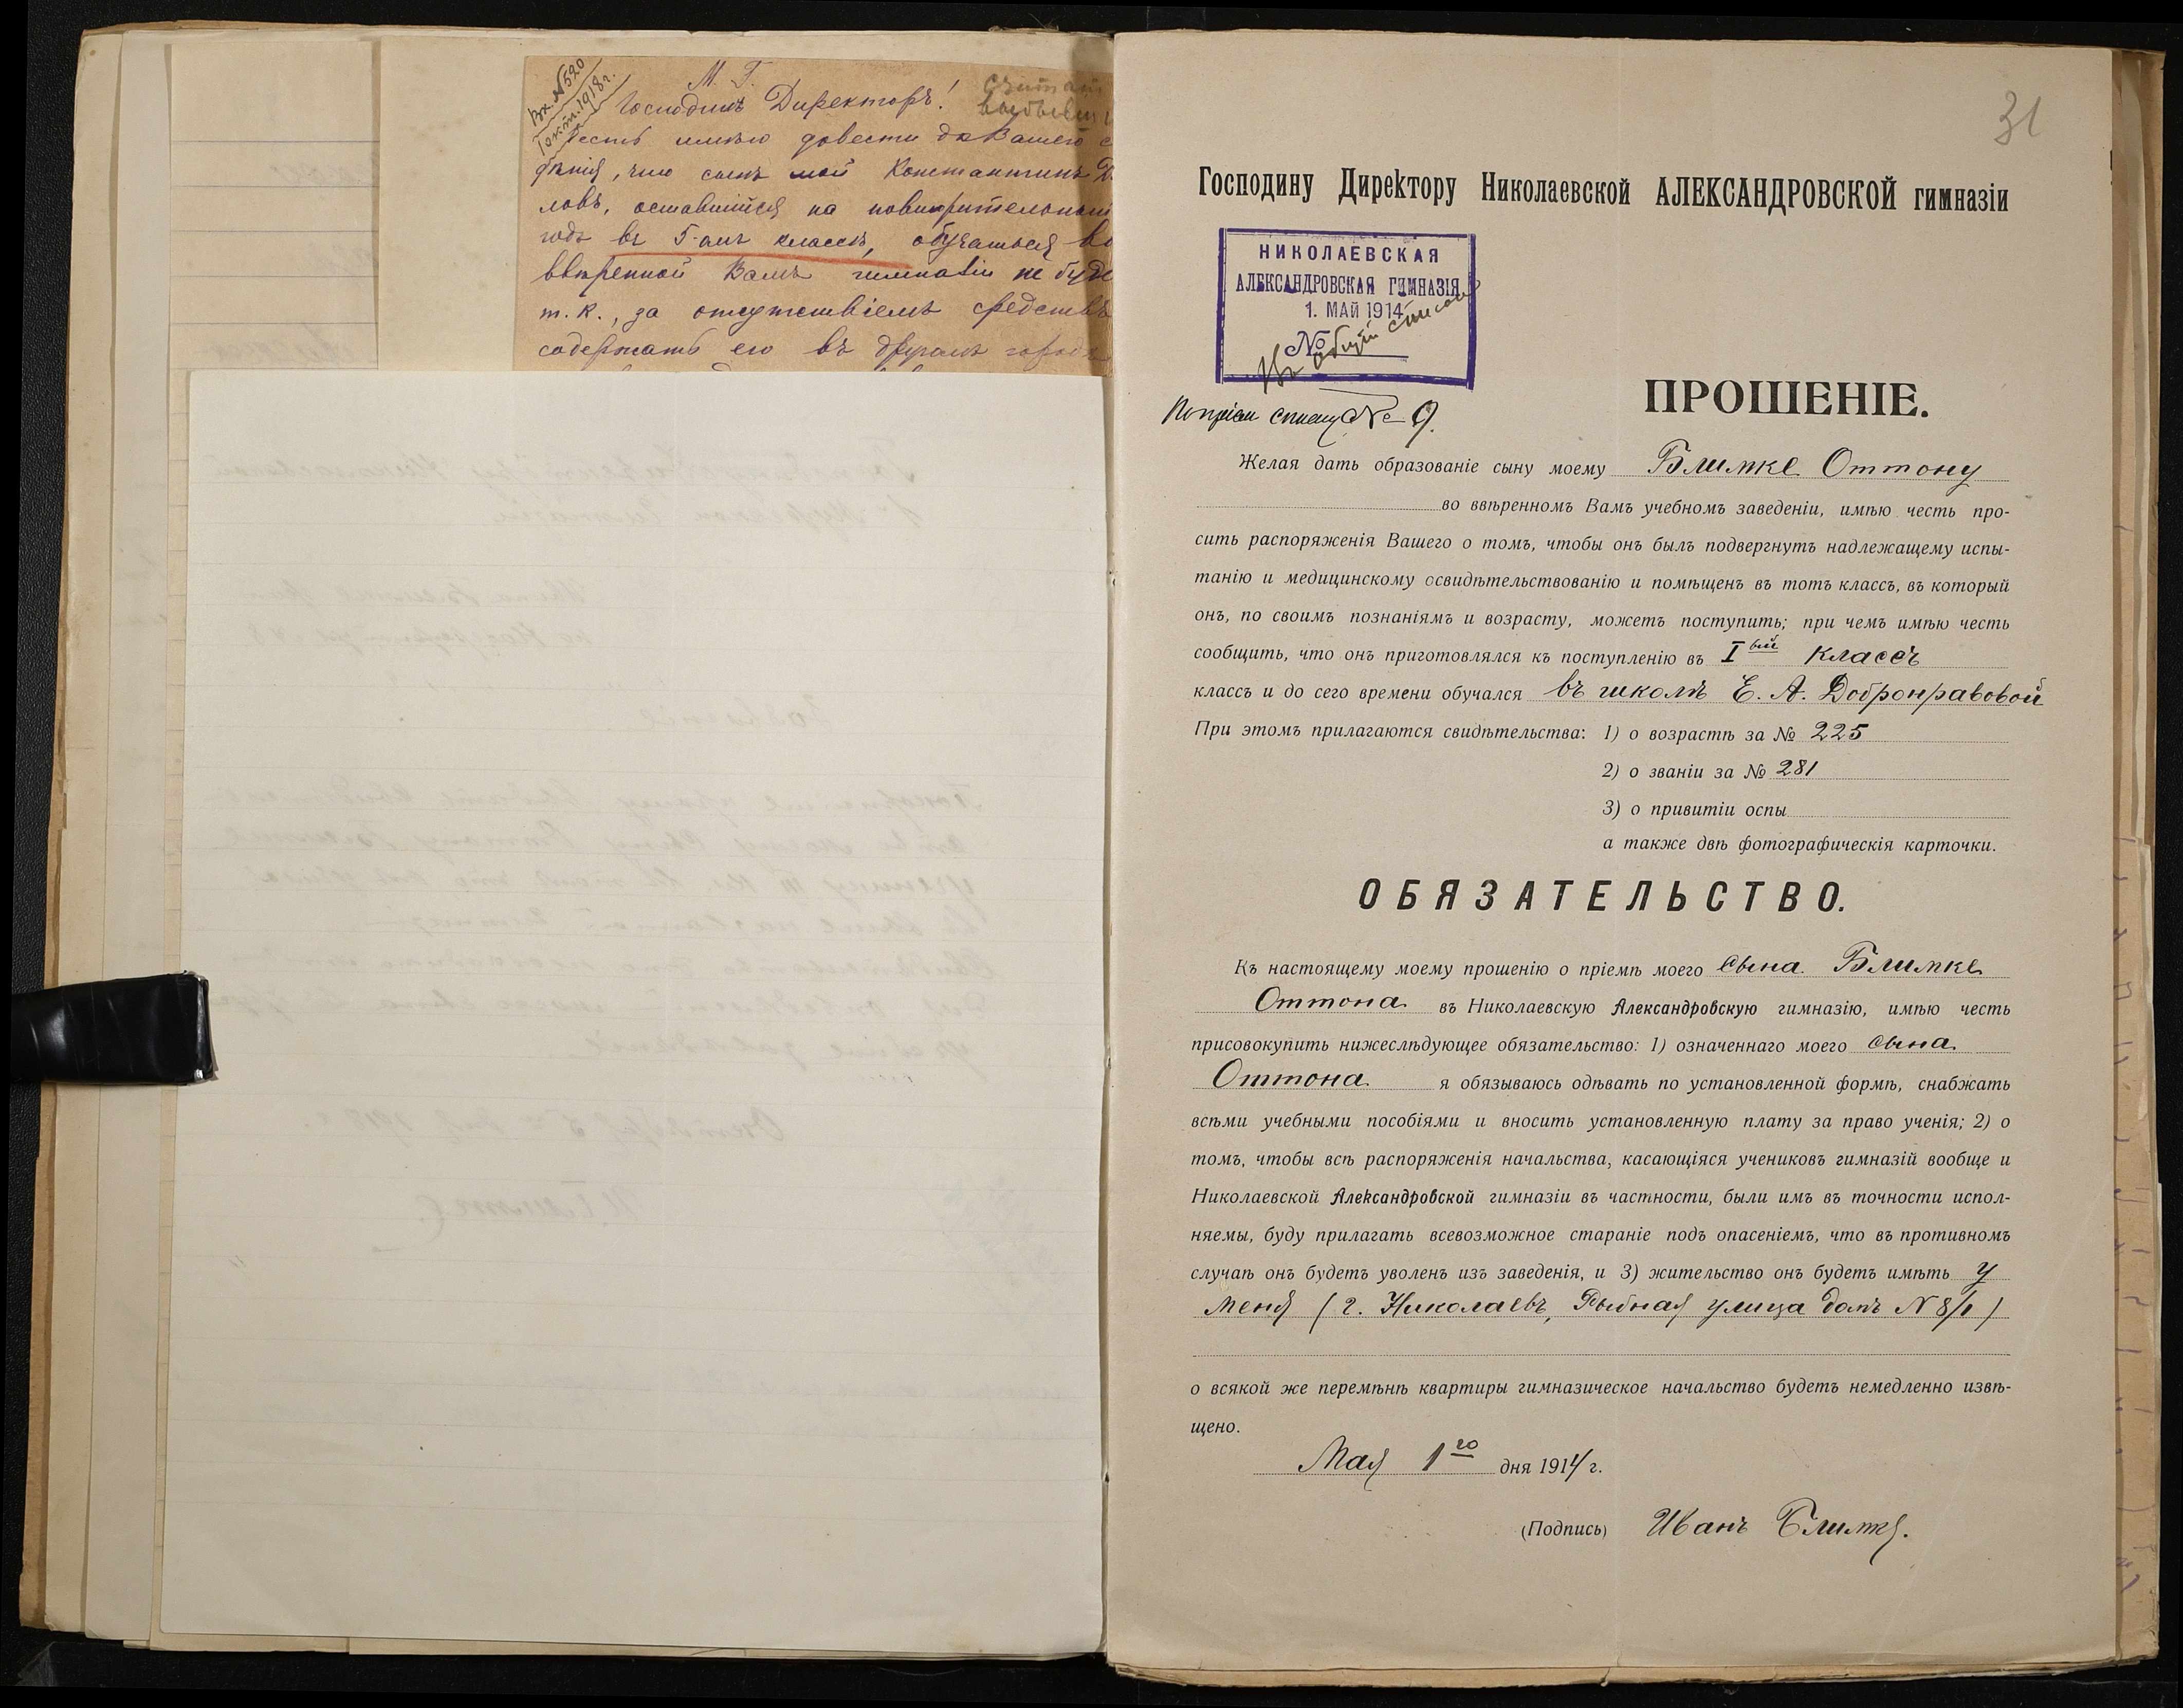 Вх. №520
1 окт. 1918 г.
М. Г.
Господинъ Директоръ!
Честь имѣю довести до Вашего с
дѣнія, что сынъ мой Константинъ
ловъ, оставшійся на повторительный
годъ въ 5-омъ классѣ, обучаться во
ввѣренной Вамъ гимназіи не буде
т. к., за отсутствіемъ средствъ
содержать его въ другомъ городѣ
31
Господину Директору Николаевской АЛЕКСАНДРОВСКОЙ гимназіи
НИКОЛАЕВСКАЯ
АЛЕКСАНДРОВСКАЯ ГИМНАЗІЯ
1. МАЙ 1914
№
Въ общій списокъ
№ 9.
ПРОШЕНІЕ.
Желая дать образованіе сыну моему Блимке Оттону
во ввѣренномъ Вамъ учебномъ заведеніи, имѣю честь про-
сить распоряженія Вашего о томъ, чтобы онъ былъ подвергнутъ надлежащему испы-
танію и медицинскому освидѣтельствованію и помѣщенъ въ тотъ классъ, въ который
онъ, по своимъ познаніямъ и возрасту, можетъ поступить; при чемъ имѣю честь
сообщить, что онъ приготовлялся къ поступленію въ I ый классъ
классъ и до сего времени обучался въ школѣ Е. А. Добронравовой
При этомъ прилагаются свидѣтельства: 1) о возрастѣ за № 225
2) о званіи за № 281
3) о привитіи оспы
а также двѣ фотографическія карточки.
ОБЯЗАТЕЛЬСТВО.
Къ настоящему моему прошенію о пріемѣ моего сына Блимке
Оттона въ Николаевскую Александровскую гимназію, имѣю честь
присовокупить нижеслѣдующее обязательство: 1) означеннаго моего сына
Оттона я обязываюсь одѣвать по установленной формѣ, снабжать
всѣми учебными пособіями и вносить установленную плату за право ученія; 2) о
томъ, чтобы всѣ распоряженія начальства, касающіяся учениковъ гимназій вообще и
Николаевской Александровской гимназіи въ частности, были имъ въ точности испол-
няемы, буду прилагать всевозможное стараніе подъ опасеніемъ, что въ противномъ
случаѣ онъ будетъ уволенъ изъ заведенія, и 3) жительство онъ будетъ имѣть у
меня (г. Николаевъ, Рыбная улица домъ N 8/1)
о всякой же перемѣнѣ квартиры гимназическое начальство будетъ немедленно извѣ-
щено.
Мая 1го дня 1914 г.
(Подпись) Иванъ Блимке.